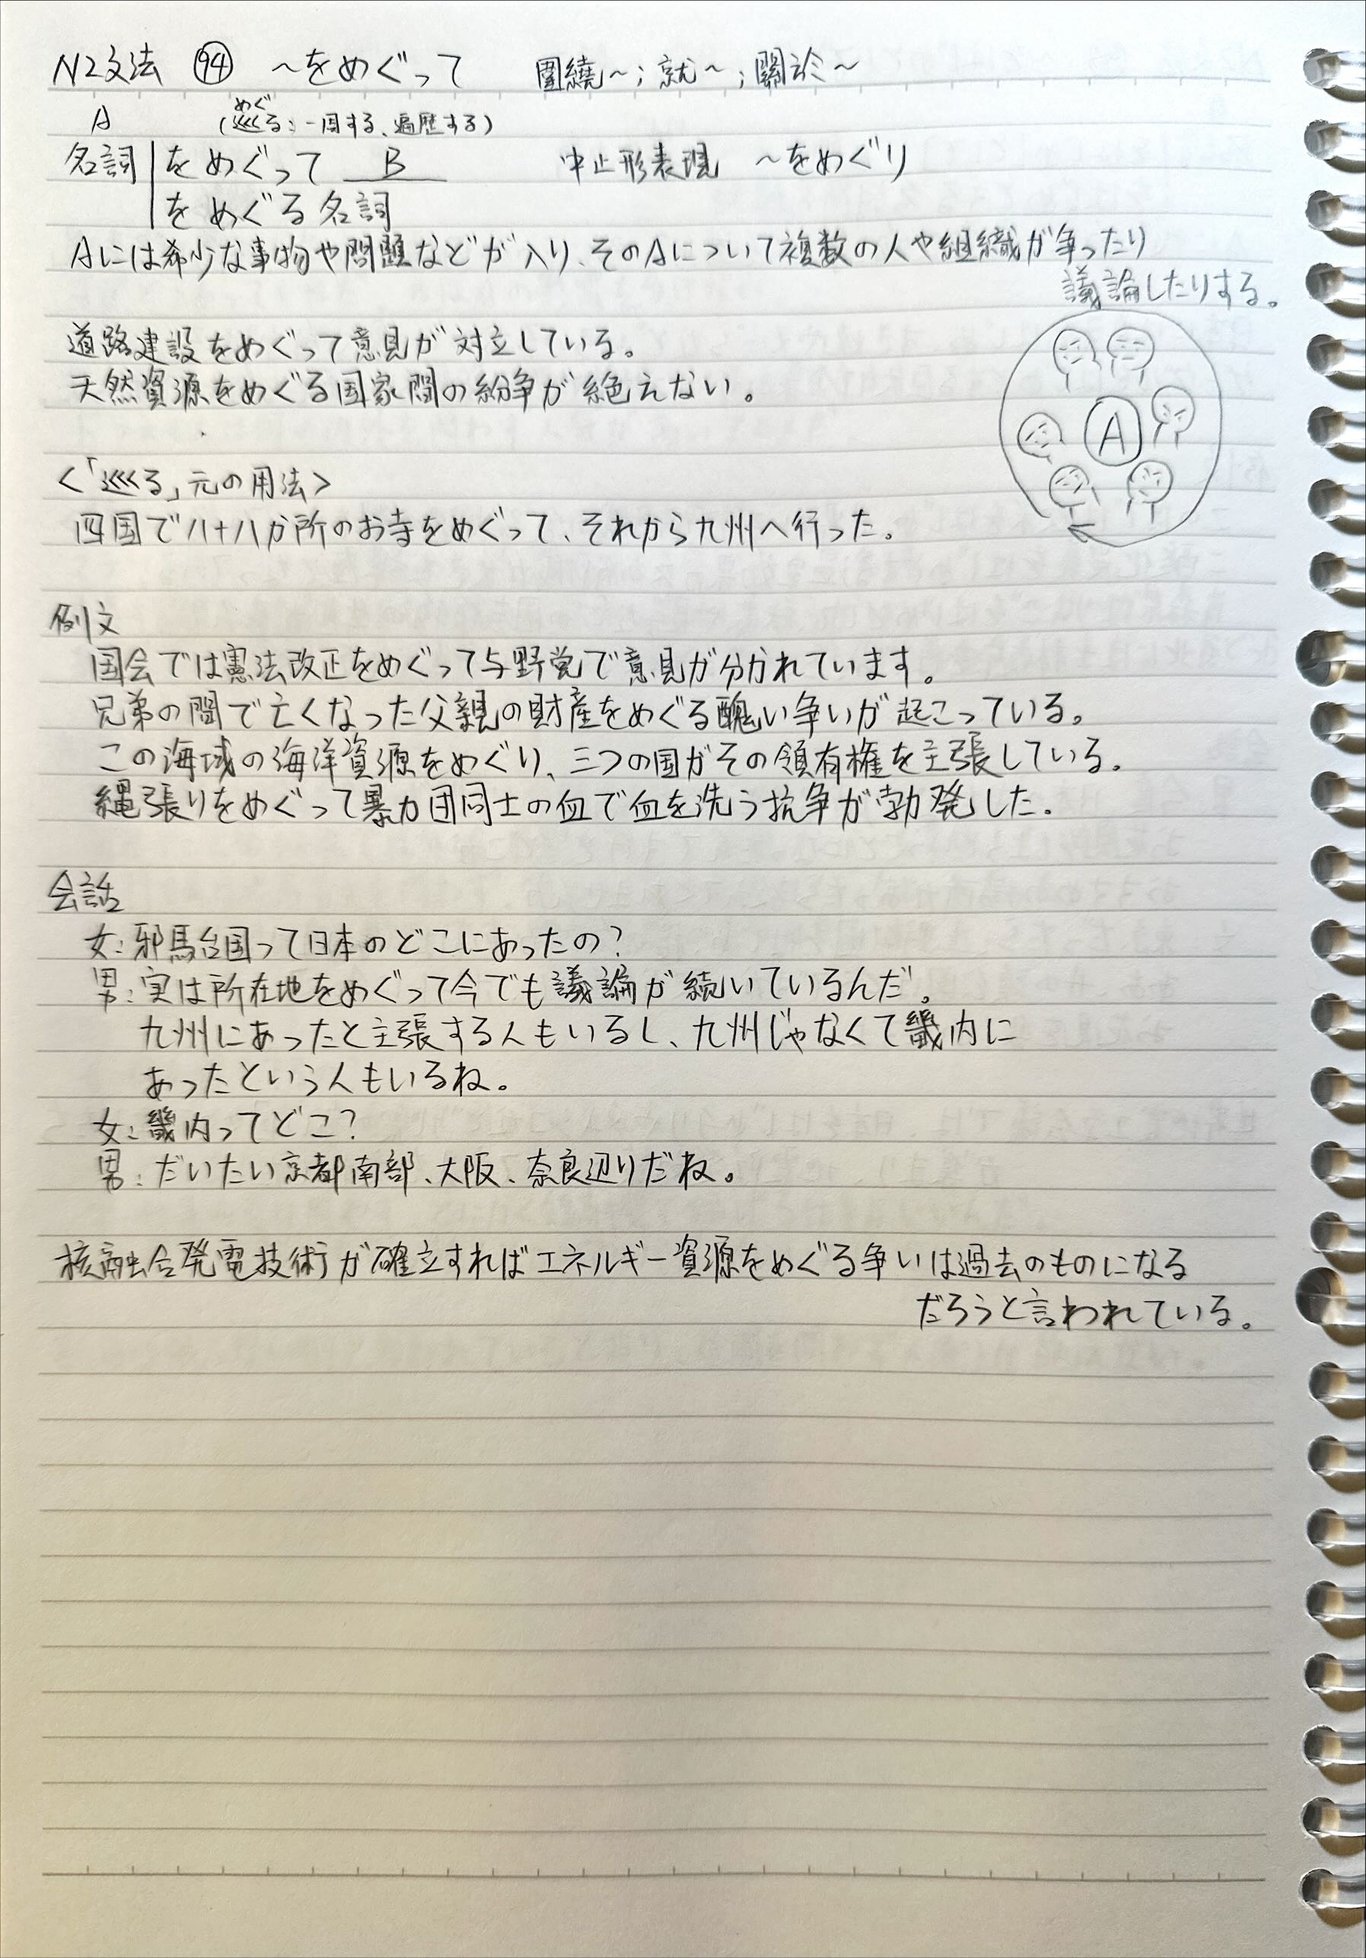 N2文法 ㉔ ～をめぐって 圍繞～；就～；關於～
A
めぐ
(巡る：一周する、遍歴する)
名詞 をめぐって B 中止形表現 ～をめぐり
をめぐる名詞
Aには希少な事物や問題などが入り、そのAについて複数の人や組織が争ったり
議論したりする。
道路建設をめぐって意見が対立している。
天然資源をめぐる国家間の紛争が絶えない。
A
<「巡る」元の用法>
四国で八十八か所のお寺をめぐって、それから九州へ行った。
例文
国会では憲法改正をめぐって与野党で意見が分かれています。
兄弟の間で亡くなった父親の財産をめぐる醜い争いが起こっている。
この海域の海洋資源をめぐり、三つの国がその領有権を主張している。
縄張りをめぐって暴力団同士の血で血を洗う抗争が勃発した。
会話
女：邪馬台国って日本のどこにあったの？
男：実は所在地をめぐって今でも議論が続いているんだ。
九州にあったと主張する人もいるし、九州じゃなくて畿内に
あったという人もいるね。
女：畿内ってどこ？
男：だいたい京都南部、大阪、奈良辺りだね。
核融合発電技術が確立すればエネルギー資源をめぐる争いは過去のものになる
だろうと言われている。